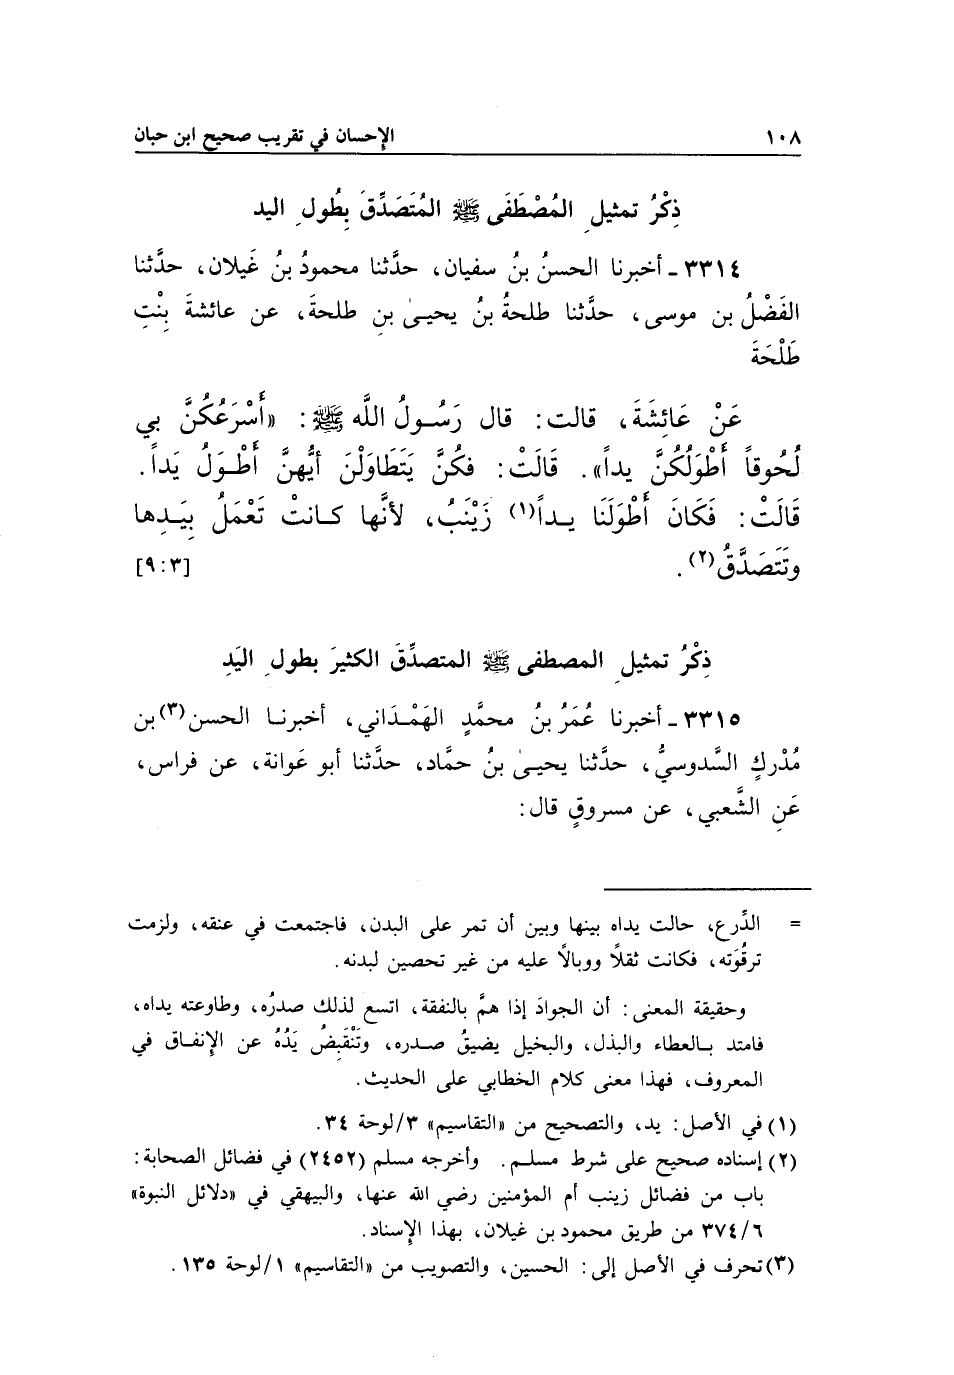 ١٠٨ الإحسان في تقريب صحيح ابن حبان
ذِكْرُ تمثيلِ المُصْطَفَى ﷺ المُتَصَدِّقَ بِطُولِ اليد
٣٣١٤ ـ أخبرنا الحسنُ بنُ سفيان، حدَّثنا محمودُ بنُ غَيلان، حدَّثنا
الفَضْلُ بن موسى، حدَّثنا طلحةُ بنُ يحيىٰ بنِ طلحةَ، عن عائشةَ بِنْتِ
طَلْحَةَ
عَنْ عَائِشَةَ، قالت: قال رَسُولُ اللَّه ﷺ: «أَسْرَعُكُنَّ بي
لُحُوقاً أَطْوَلُكُنَّ يداً». قَالَتْ: فكُنَّ يَتَطَاوَلْنَ أيُّهنَّ أَطْوَلُ يَداً.
قَالَتْ: فَكَانَ أَطْوَلَنَا يداً(١) زَيْنَبُ، لأنَّها كانتْ تَعْمَلُ بِيَدِها
وتَتَصَدَّقُ(٢). [٣: ٩]
ذِكْرُ تمثيلِ المصطفى ﷺ المتصدِّقَ الكثيرَ بطولِ اليَدِ
٣٣١٥ ـ أخبرنا عُمَرُ بنُ محمَّدٍ الهَمْدَاني، أخبرنا الحسن(٣) بن
مُدْركٍ السَّدوسيُّ، حدَّثنا يحيىٰ بنُ حمَّاد، حدَّثنا أبو عَوانة، عن فراس،
عَنِ الشَّعبي، عن مسروقٍ قال:
= الدِّرع، حالت يداه بينها وبين أن تمر على البدن، فاجتمعت في عنقه، ولزمت
ترقُوَته، فكانت ثقلاً ووبالاً عليه من غير تحصين لبدنه.
وحقيقة المعنى: أن الجوادَ إذا همَّ بالنفقة، اتسع لذلك صدرُه، وطاوعته يداه،
فامتد بالعطاء والبذل، والبخيل يضيقُ صدره، وتَنْقَبِضُ يَدُهُ عن الإنفاق في
المعروف، فهذا معنى كلام الخطابي على الحديث.
(١) في الأصل: يد، والتصحيح من «التقاسيم» ٣/لوحة ٣٤.
(٢) إسناده صحيح على شرط مسلم. وأخرجه مسلم (٢٤٥٢) في فضائل الصحابة:
باب من فضائل زينب أم المؤمنين رضي الله عنها، والبيهقي في «دلائل النبوة»
٣٧٤/٦ من طريق محمود بن غيلان، بهذا الإسناد.
(٣) تحرف في الأصل إلى: الحسين، والتصويب من «التقاسيم» ١/لوحة ١٣٥.